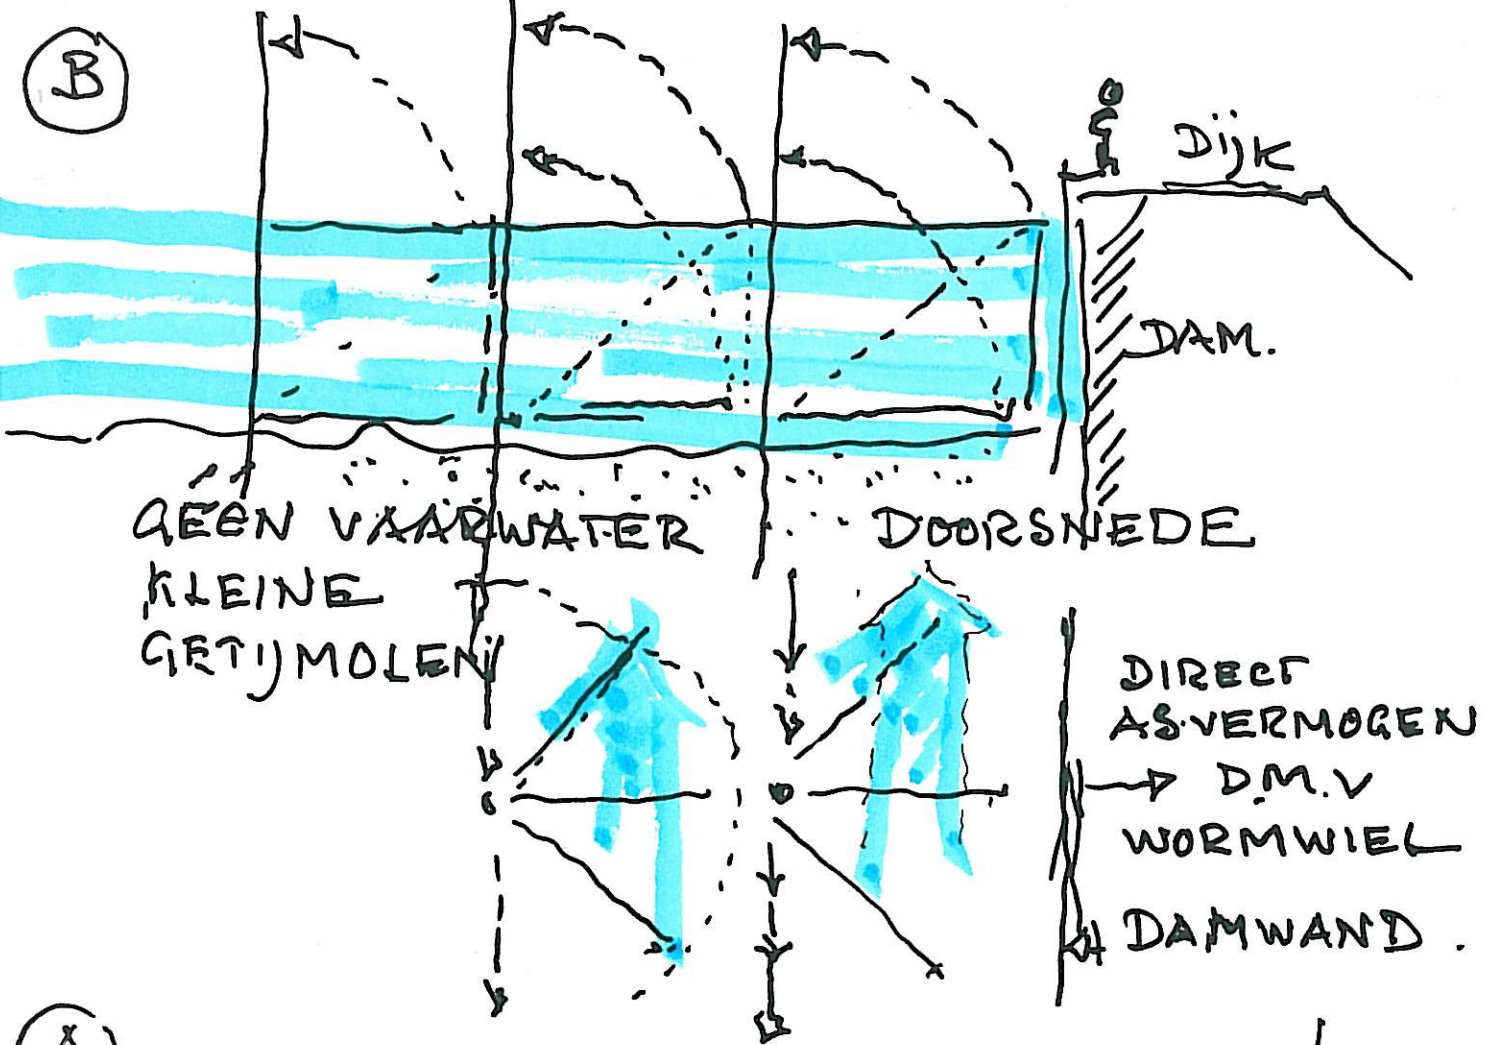 B
DIJK
DAM.
GÉÉN VAARWATER
DOORSNEDE
KLEINE
GETIJMOLEN
DIRECT
AS.VERMOGEN
D.M.V
WORMWIEL
DAMWAND.